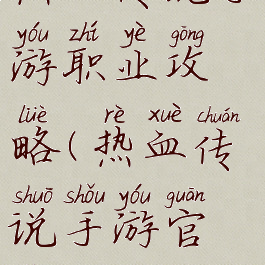 yóu zhí yè gōng
游职业攻
lüè rè xuè chuán
略(热血传
shuō shǒu yóu guān
说手游官